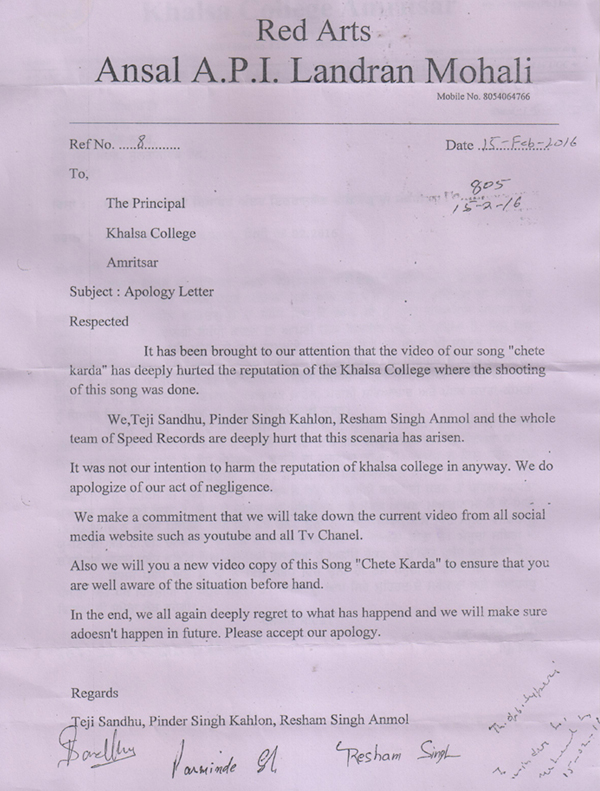 Red Arts
Ansal A.P.I. Landran Mohali
Mobile No. 8054064766
Ref No. .....8..........
Date .15-Feb-2016
To,
805
15-2-16
The Principal
Khalsa College
Amritsar
Subject : Apology Letter
Respected
It has been brought to our attention that the video of our song "chete
karda" has deeply hurted the reputation of the Khalsa College where the shooting
of this song was done.
We,Teji Sandhu, Pinder Singh Kahlon, Resham Singh Anmol and the whole
team of Speed Records are deeply hurt that this scenaria has arisen.
It was not our intention to harm the reputation of khalsa college in anyway. We do
apologize of our act of negligence.
We make a commitment that we will take down the current video from all social
media website such as youtube and all Tv Chanel.
Also we will you a new video copy of this Song "Chete Karda" to ensure that you
are well aware of the situation before hand.
In the end, we all again deeply regret to what has happend and we will make sure
adoesn't happen in future. Please accept our apology.
Regards
Teji Sandhu, Pinder Singh Kahlon, Resham Singh Anmol
Sandhu
Resham Singh